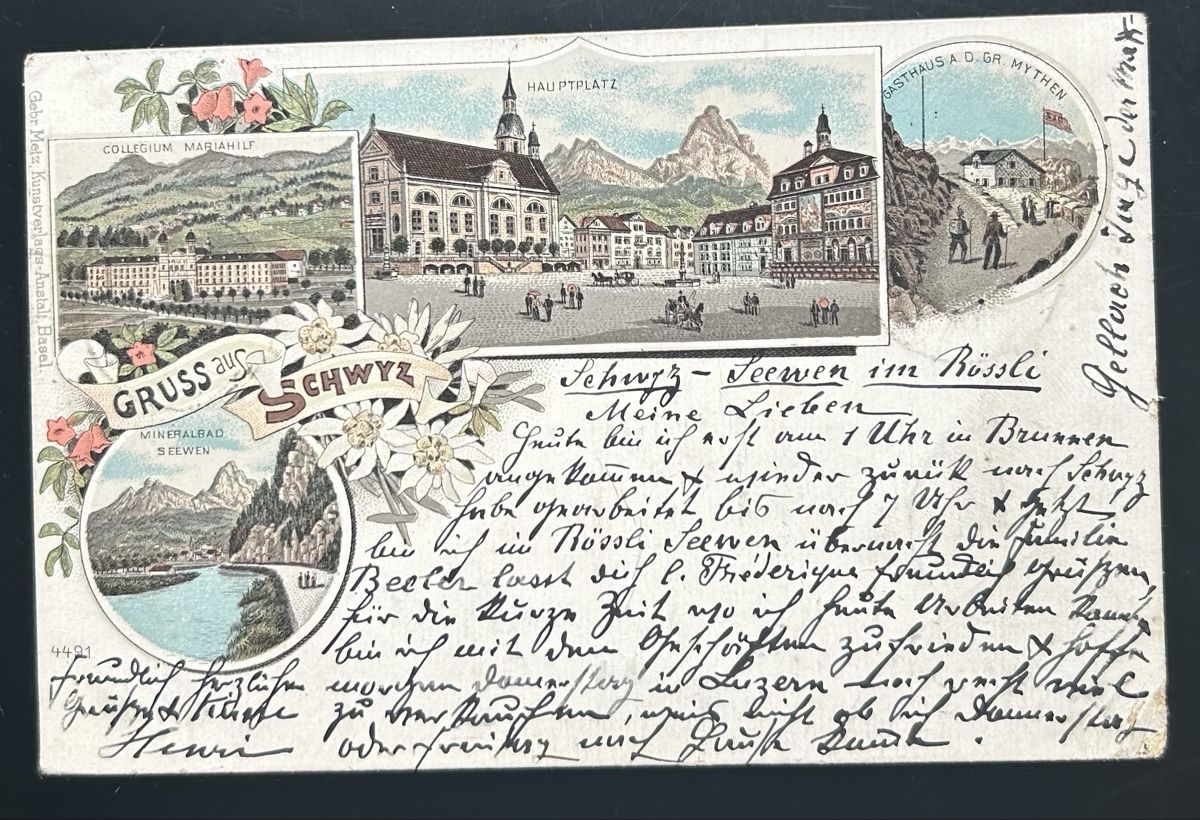 COLLEGIUM MARIAHILF
HAUPTPLATZ
GASTHAUS A. D. GR. MYTHEN
GRUSS aus SCHWYZ
MINERALBAD
SEEWEN
Gebr. Metz, Kunstverlags-Anstalt, Basel
4491
Schwyz – Seewen im Rössli
Meine Lieben
Heute bin ich erst um 1 Uhr in Brunnen
angekommen & wieder zurük nach Schwyz
habe gearbeitet bis nach 7 Uhr & jetzt
bin ich im Rössli Seewen übernacht die Familie
Beeler lasst dich l. Fréderique freundlich grüssen,
für die kurze Zeit wo ich heute Arbeiten konnte
bin ich mit den Geschäften zufrieden & hoffe
morgen Donnerstag in Luzern noch recht viel
zu verkaufen, weis nicht ob ich Donnerstag
oder Freitag nach Hause komme.
freundlich herzlichen
Grüsse & Küsse
Henri
der